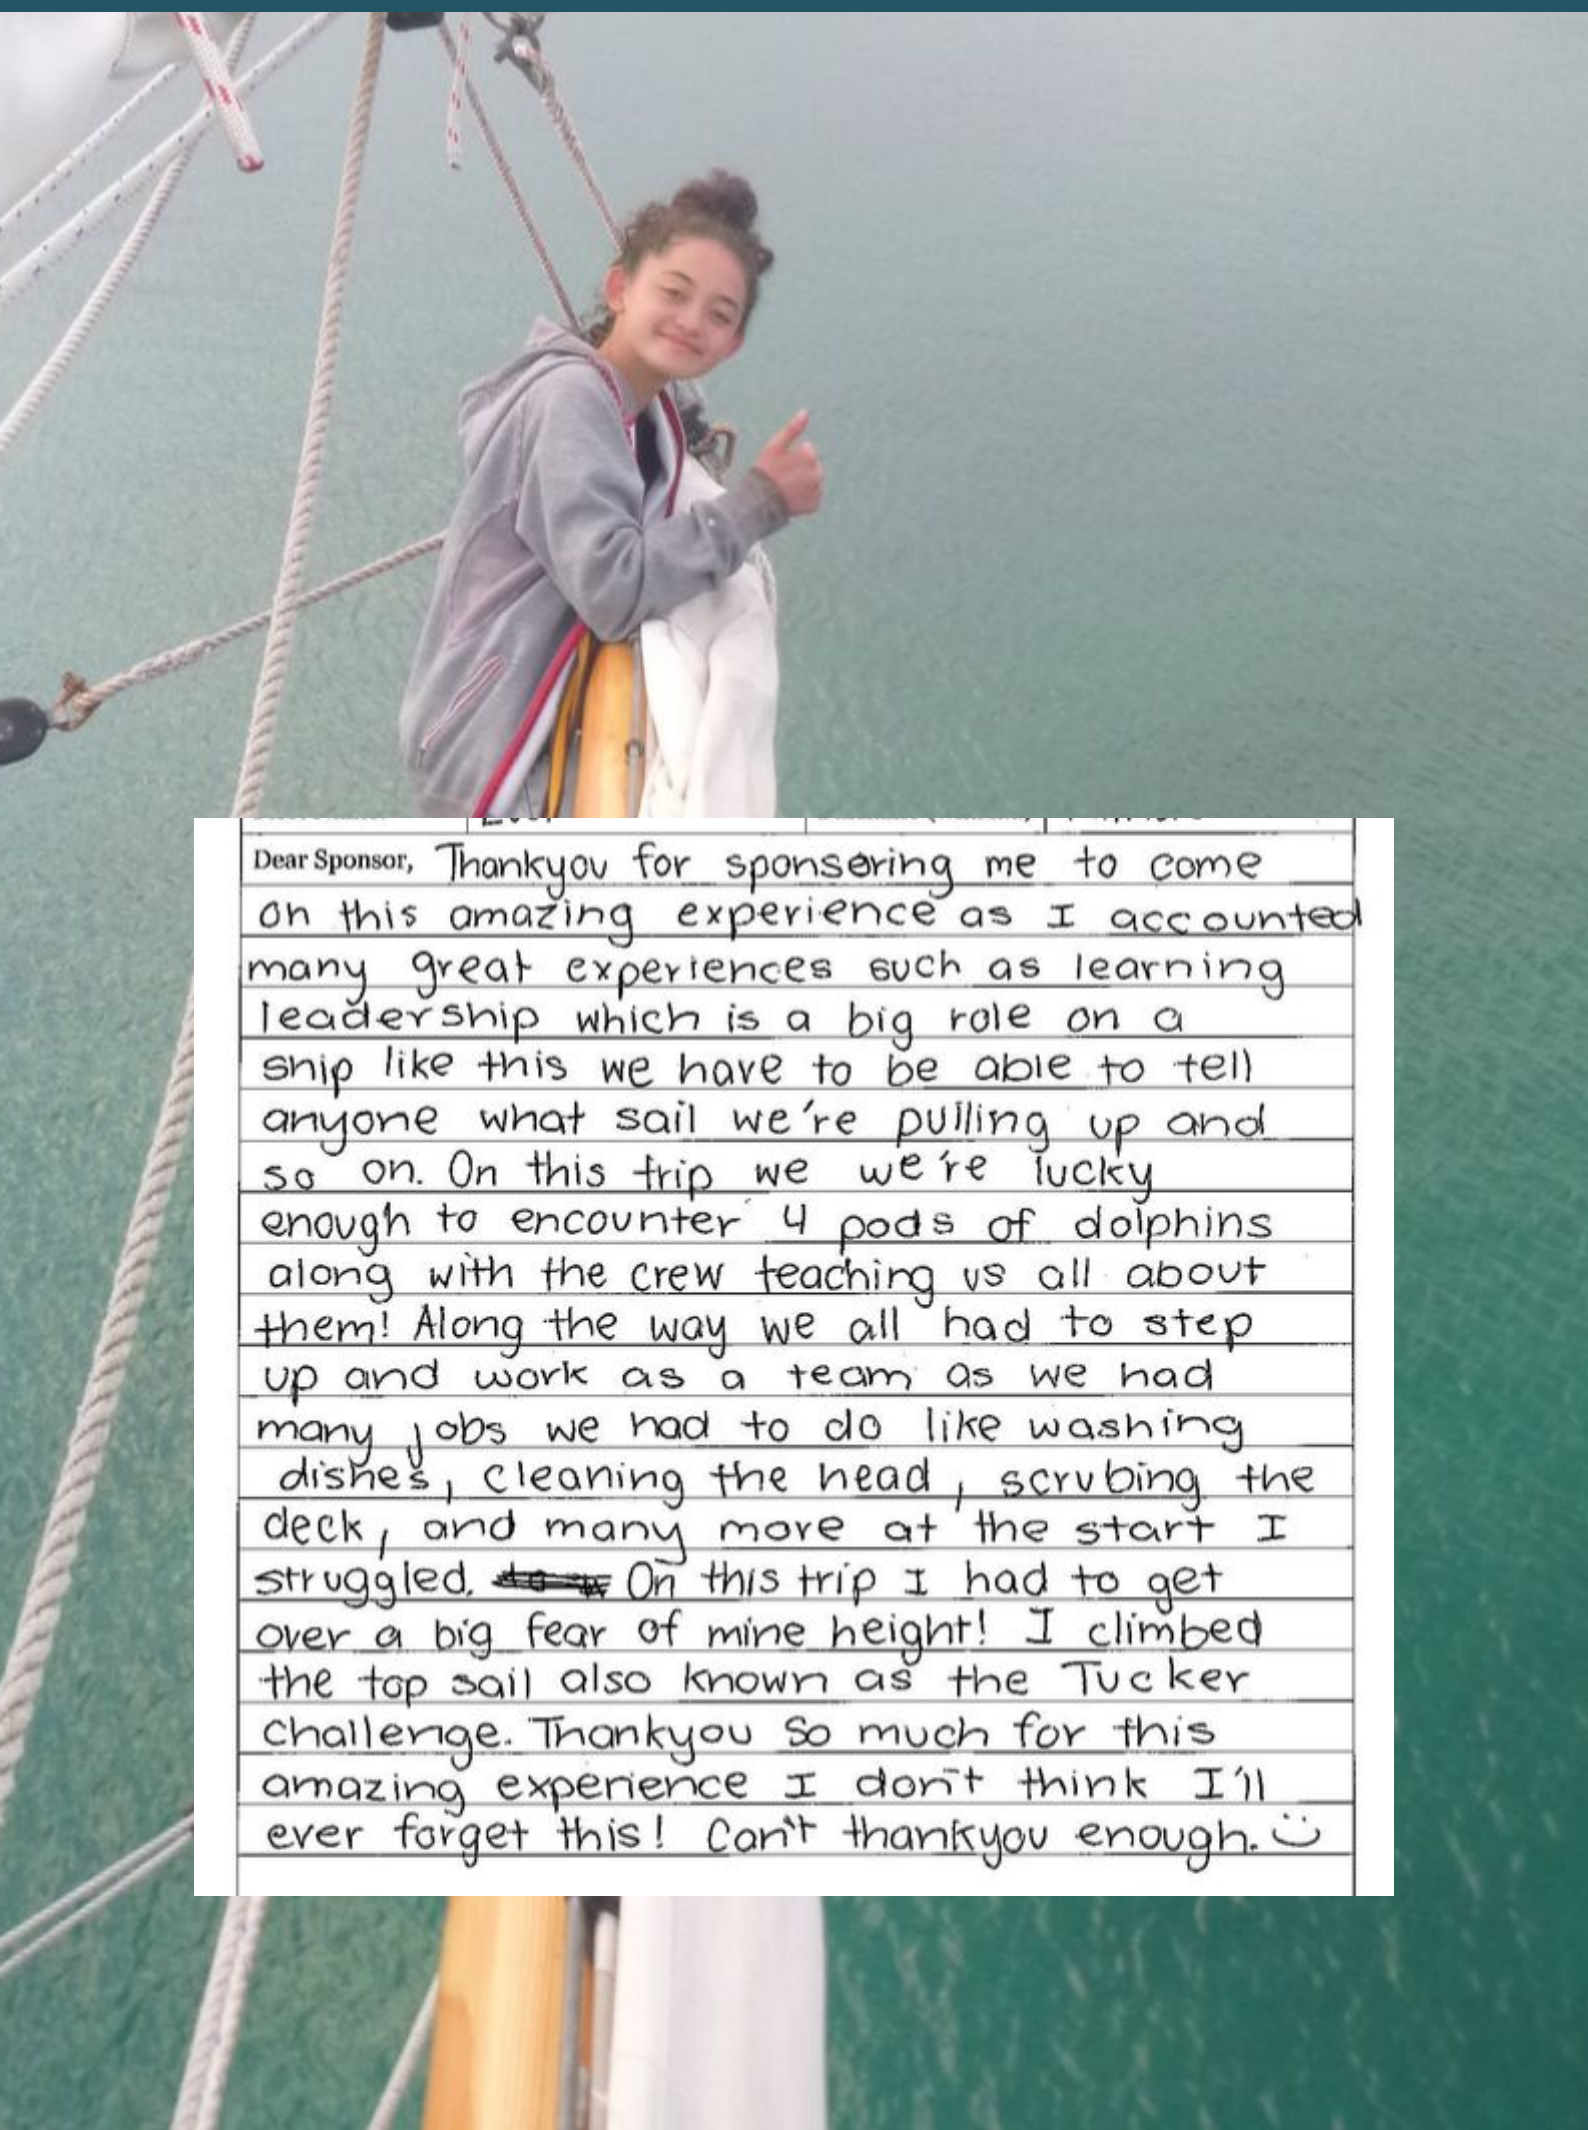 Dear Sponsor, Thankyou for sponsering me to come
on this amazing experience as I accounted
many great experiences such as learning
leadership which is a big role on a
ship like this we have to be able to tell
anyone what sail we're pulling up and
so on. On this trip we we're lucky
enough to encounter 4 pods of dolphins
along with the crew teaching us all about
them! Along the way we all had to step
up and work as a team as we had
many jobs we had to do like washing
dishes, cleaning the head, scrubing the
deck, and many more at the start I
struggled. On this trip I had to get
over a big fear of mine height! I climbed
the top sail also known as the Tucker
challenge. Thankyou so much for this
amazing experience I don't think I'll
ever forget this! Can't thankyou enough. :)